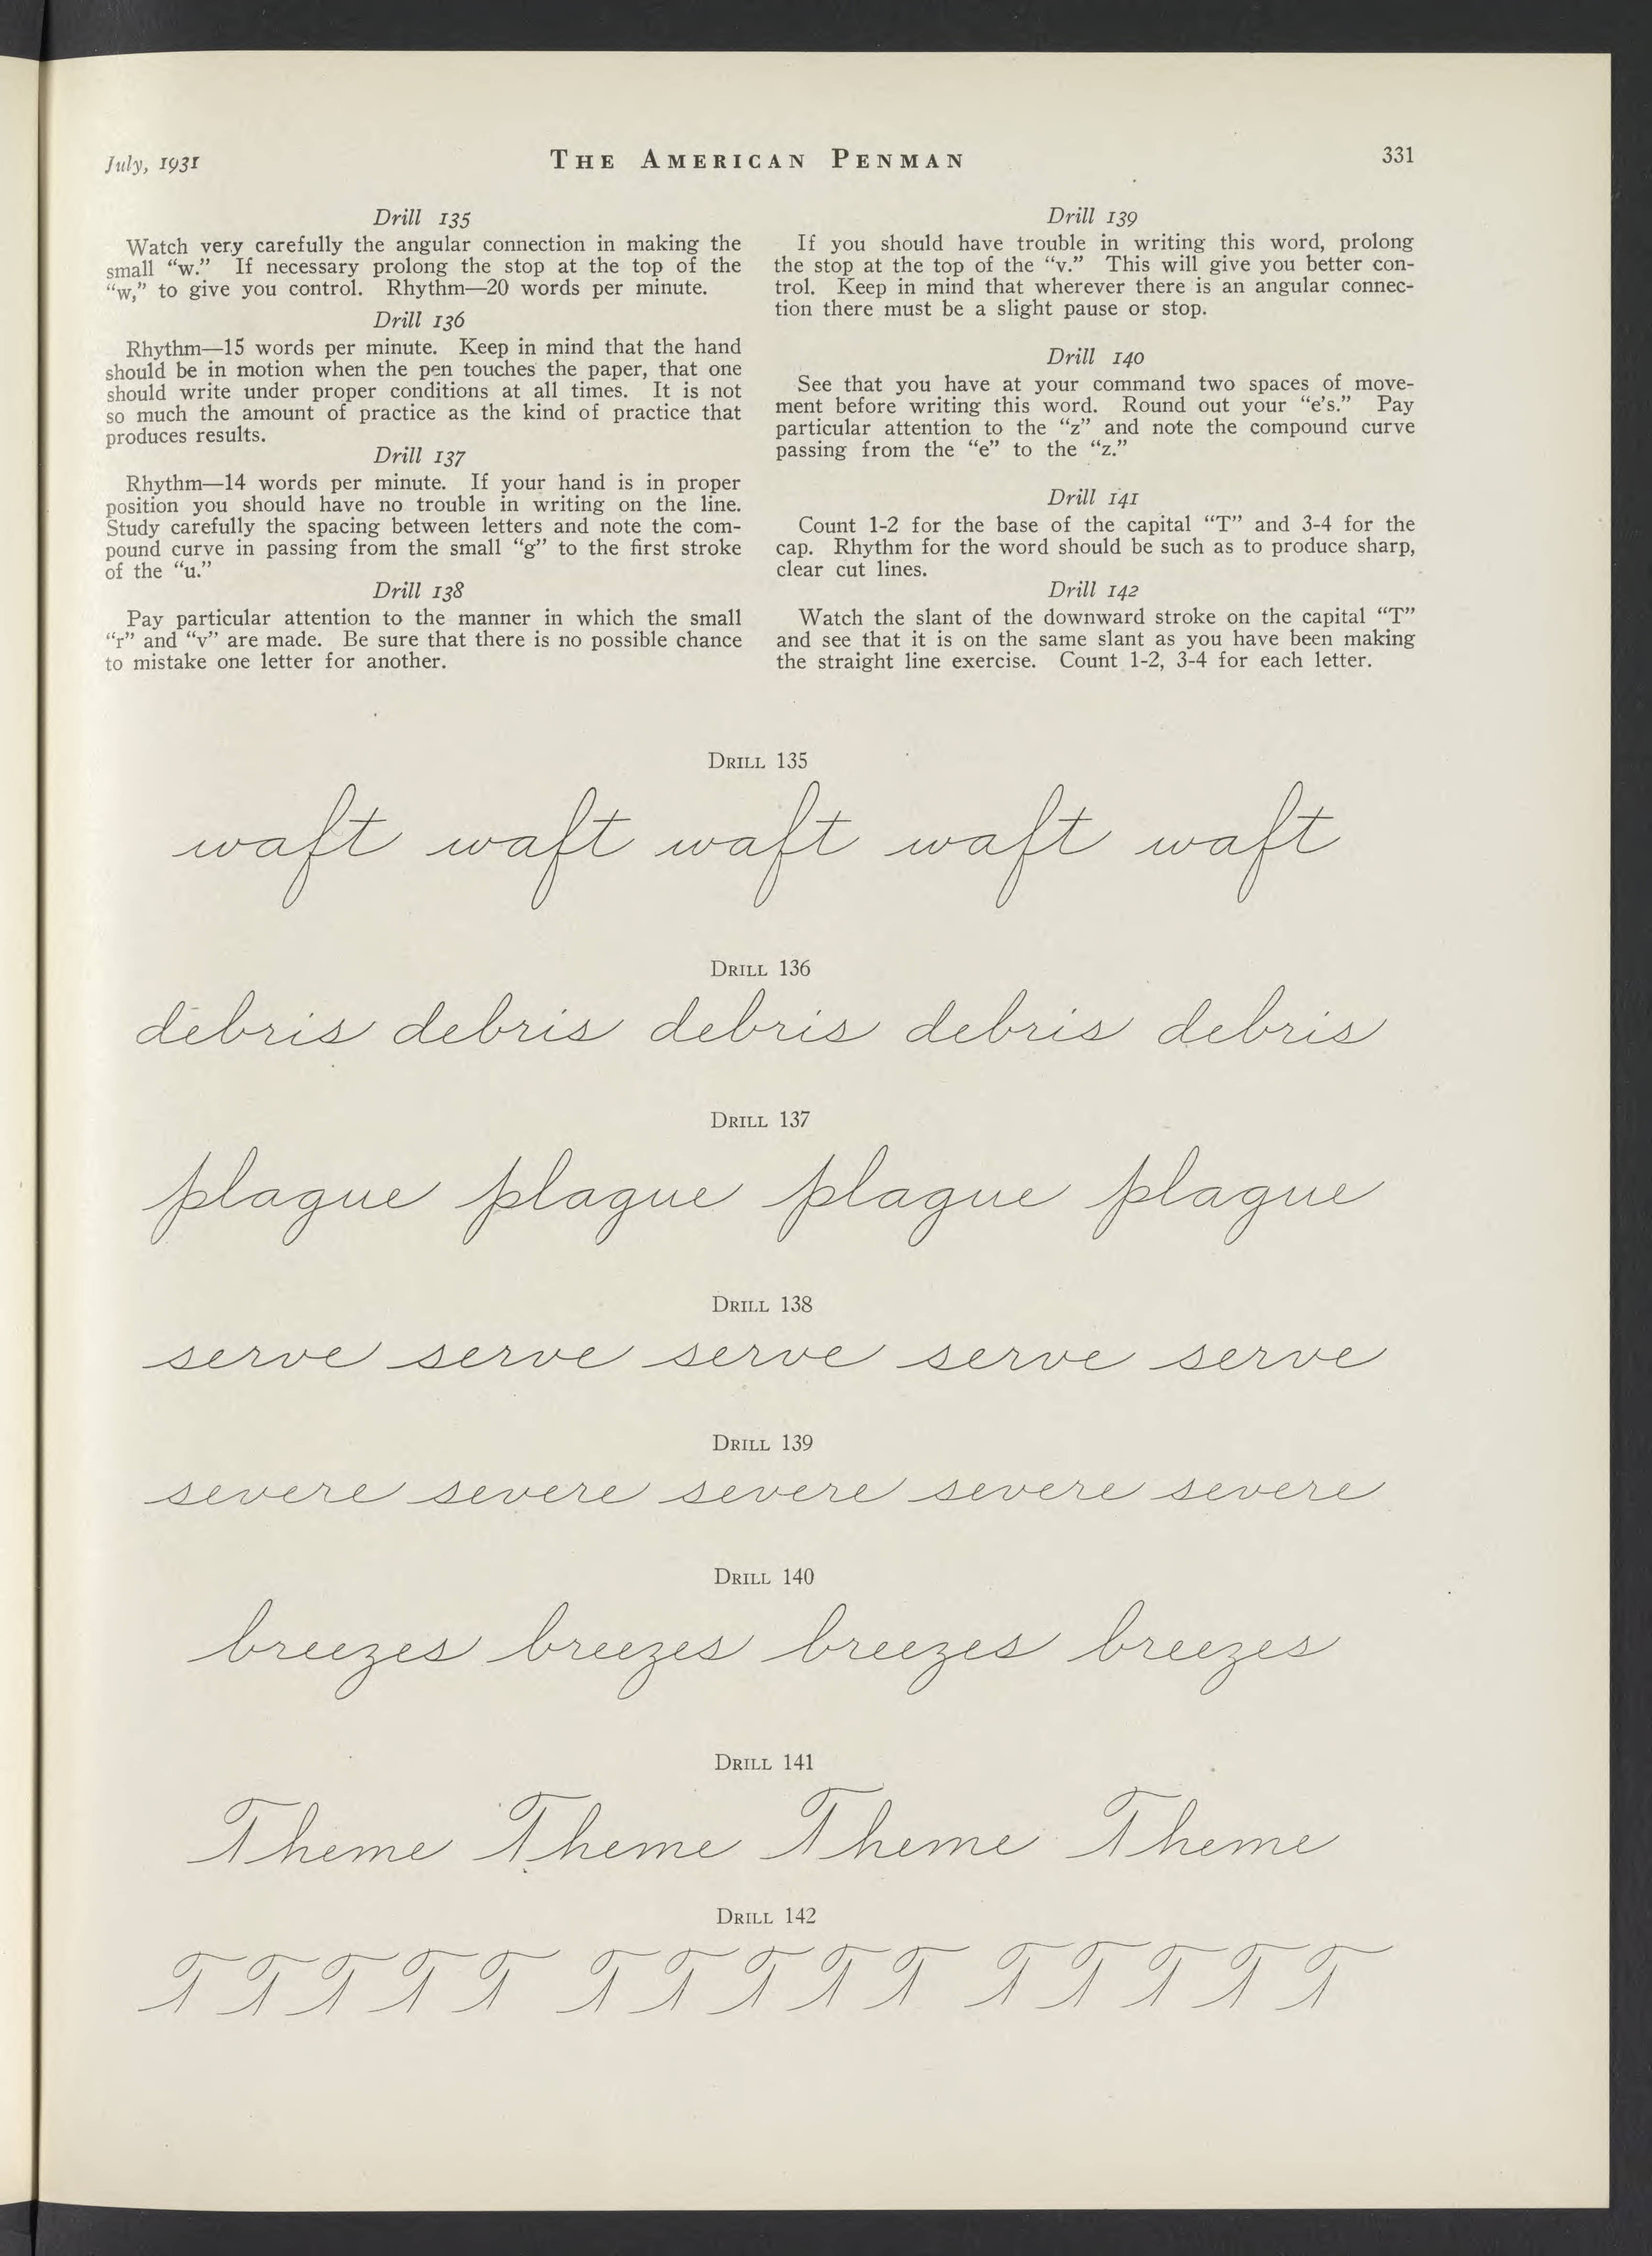 July, 1931
THE AMERICAN PENMAN
331
Drill 135
Watch very carefully the angular connection in making the
small “w.” If necessary prolong the stop at the top of the
“w,” to give you control. Rhythm—20 words per minute.
Drill 136
Rhythm—15 words per minute. Keep in mind that the hand
should be in motion when the pen touches the paper, that one
should write under proper conditions at all times. It is not
so much the amount of practice as the kind of practice that
produces results.
Drill 137
Rhythm—14 words per minute. If your hand is in proper
position you should have no trouble in writing on the line.
Study carefully the spacing between letters and note the com-
pound curve in passing from the small “g” to the first stroke
of the “u.”
Drill 138
Pay particular attention to the manner in which the small
“r” and “v” are made. Be sure that there is no possible chance
to mistake one letter for another.
Drill 139
If you should have trouble in writing this word, prolong
the stop at the top of the “v.” This will give you better con-
trol. Keep in mind that wherever there is an angular connec-
tion there must be a slight pause or stop.
Drill 140
See that you have at your command two spaces of move-
ment before writing this word. Round out your “e's.” Pay
particular attention to the “z” and note the compound curve
passing from the “e” to the “z.”
Drill 141
Count 1-2 for the base of the capital “T” and 3-4 for the
cap. Rhythm for the word should be such as to produce sharp,
clear cut lines.
Drill 142
Watch the slant of the downward stroke on the capital “T”
and see that it is on the same slant as you have been making
the straight line exercise. Count 1-2, 3-4 for each letter.
DRILL 135
waft waft waft waft waft
DRILL 136
debris debris debris debris debris
DRILL 137
plague plague plague plague
DRILL 138
serve serve serve serve serve
DRILL 139
severe severe severe severe severe
DRILL 140
breezes breezes breezes breezes
DRILL 141
Theme Theme Theme Theme
DRILL 142
T T T T T T T T T T T T T T T